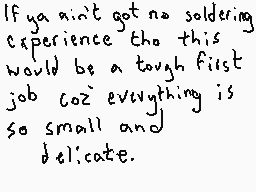 If ya ain't got no soldering
experience tho this
would be a tough first
job coz everything is
so small and
delicate.